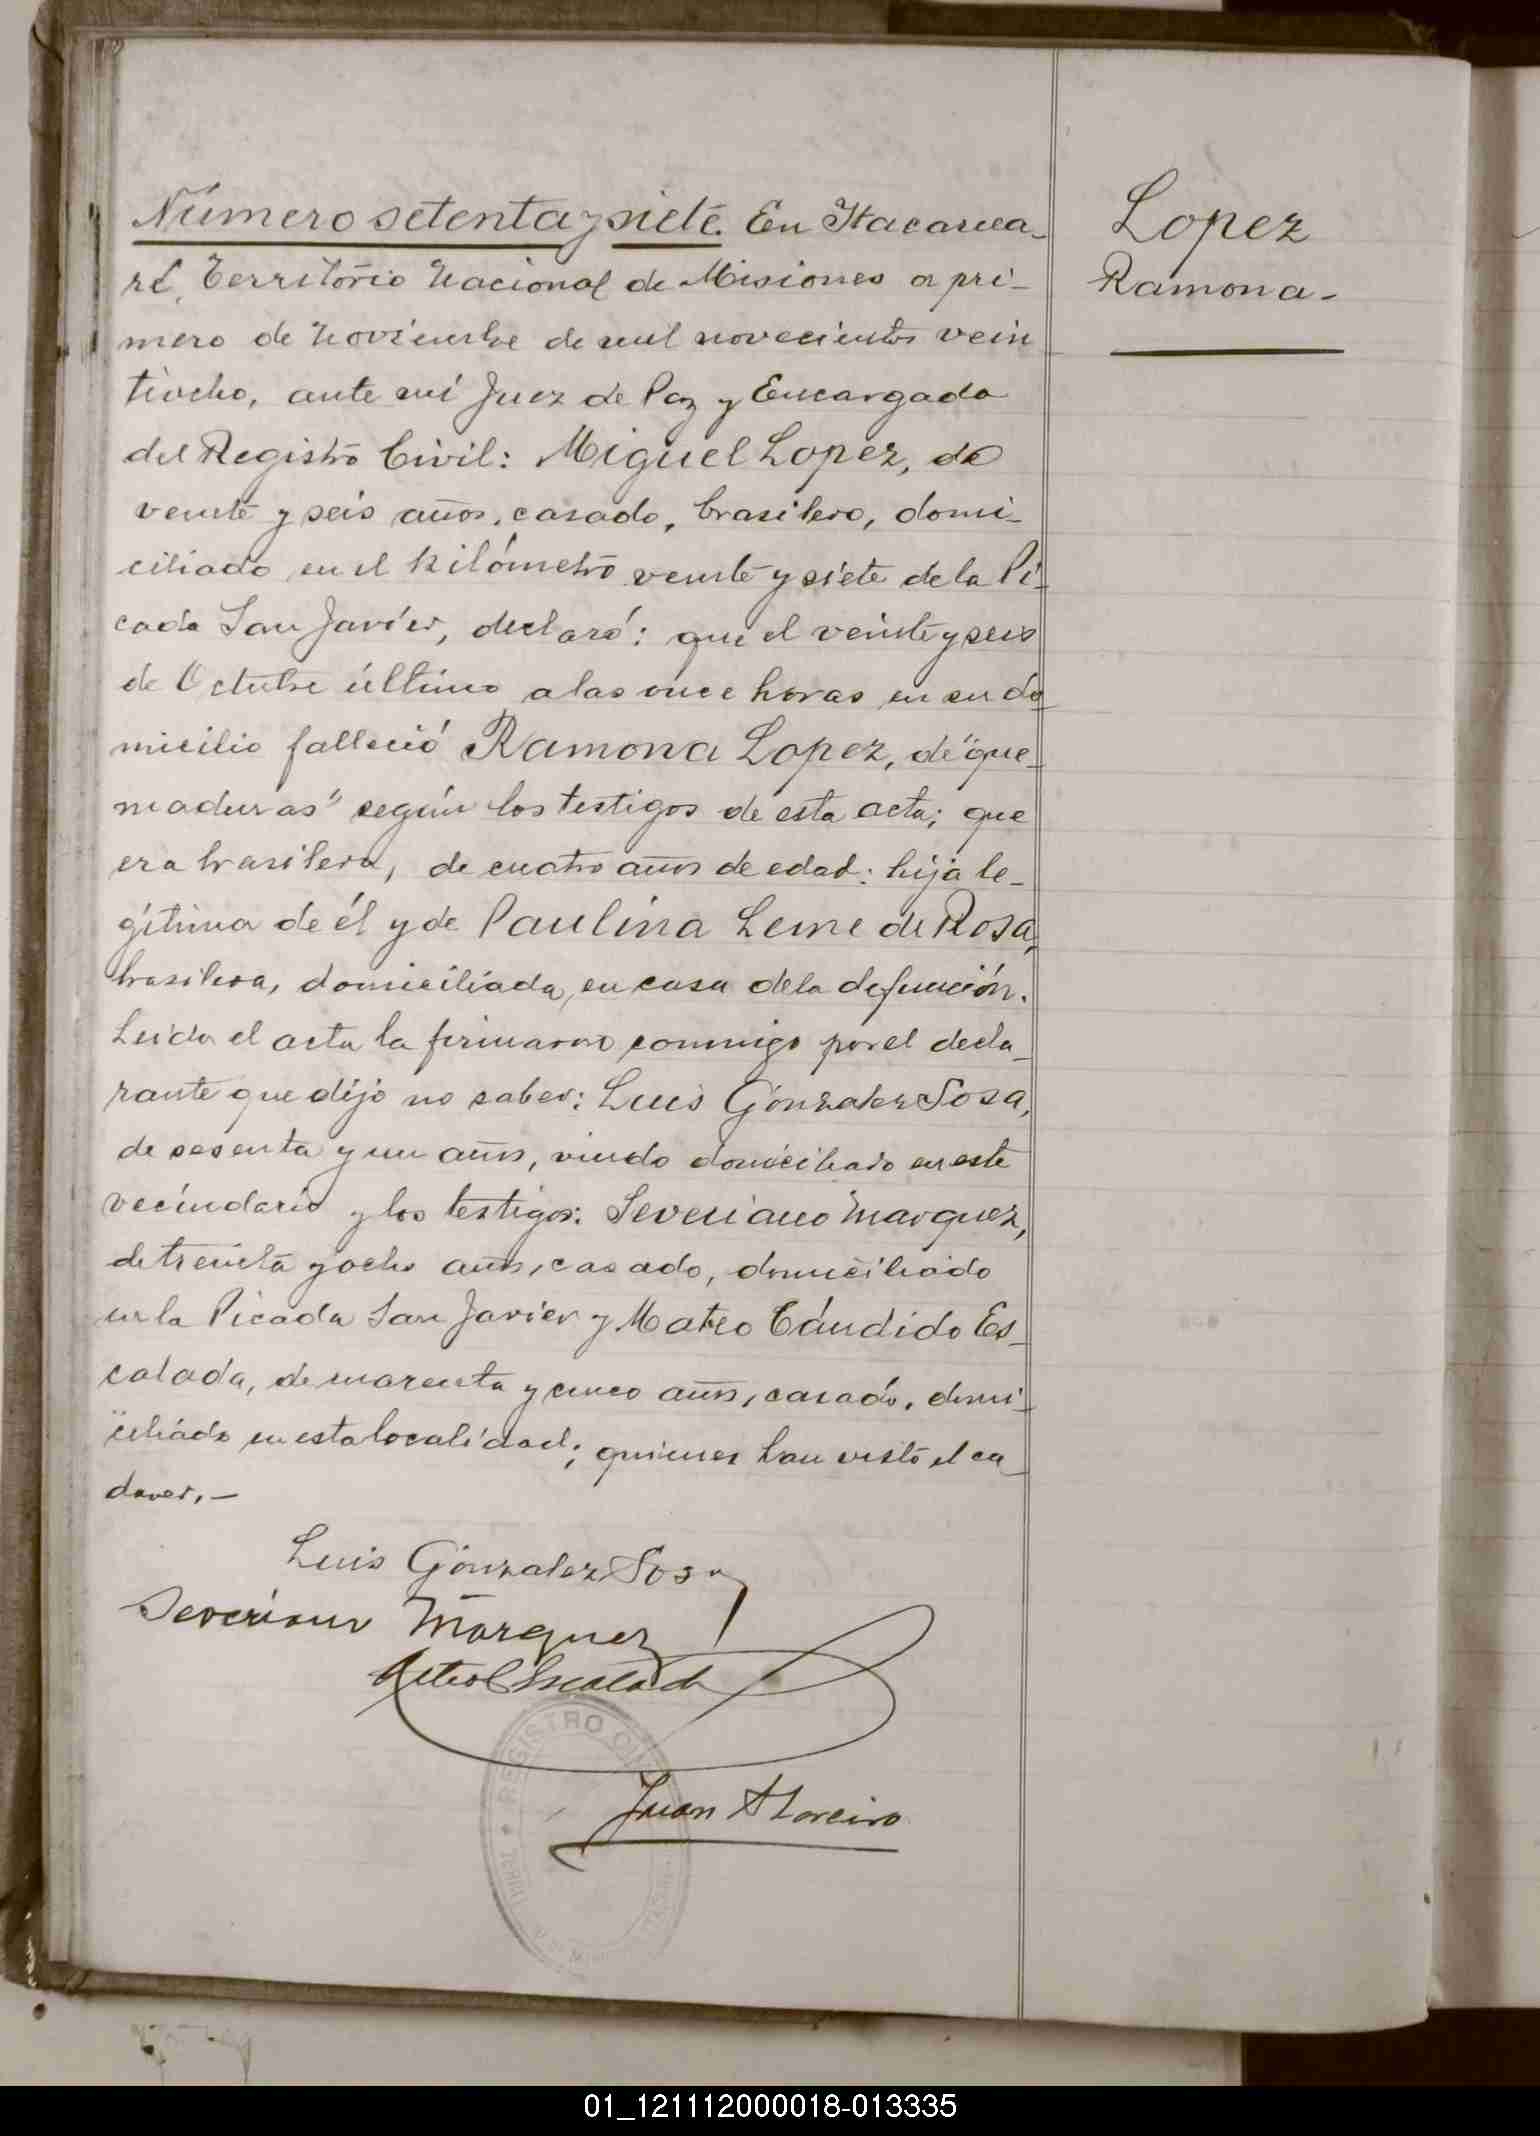 Número setenta y siete. En Itacarua-
ré, Territorio Nacional de Misiones a pri-
mero de Noviembre de mil novecientos vein
tiocho, ante mí Juez de Paz y Encargado
del Registro Civil: Miguel Lopez, de
veinte y seis años, casado, brasilero, domi-
ciliado en el kilómetro veinte y siete de la Pi-
cada San Javier, declaró: que el veinte y seis
de Octubre último a las once horas en su do-
micilio falleció Ramona Lopez, de "que-
maduras" según los testigos de esta acta; que
era brasilera, de cuatro años de edad: hija le-
gítima de él y de Paulina Leme de Rosa,
brasilera, domiciliada en casa de la defunción.
Leida el acta la firmaron conmigo por el decla-
rante que dijo no saber: Luis Gonzalez Sosa,
de sesenta y un años, viudo domiciliado en este
vecindario y los testigos: Severiano Marquez,
de treinta y ocho años, casado, domiciliado
en la Picada San Javier y Mateo Cándido Es-
calada, de cuarenta y cinco años, casado, domi-
ciliado en esta localidad; quienes han visto el ca-
daver.-
Luis Gonzalez Sosa
Severiano Marquez
Mateo C Escalada
Juan A Loreiro
REGISTRO CI
Lopez
Ramona-
01_121112000018-013335